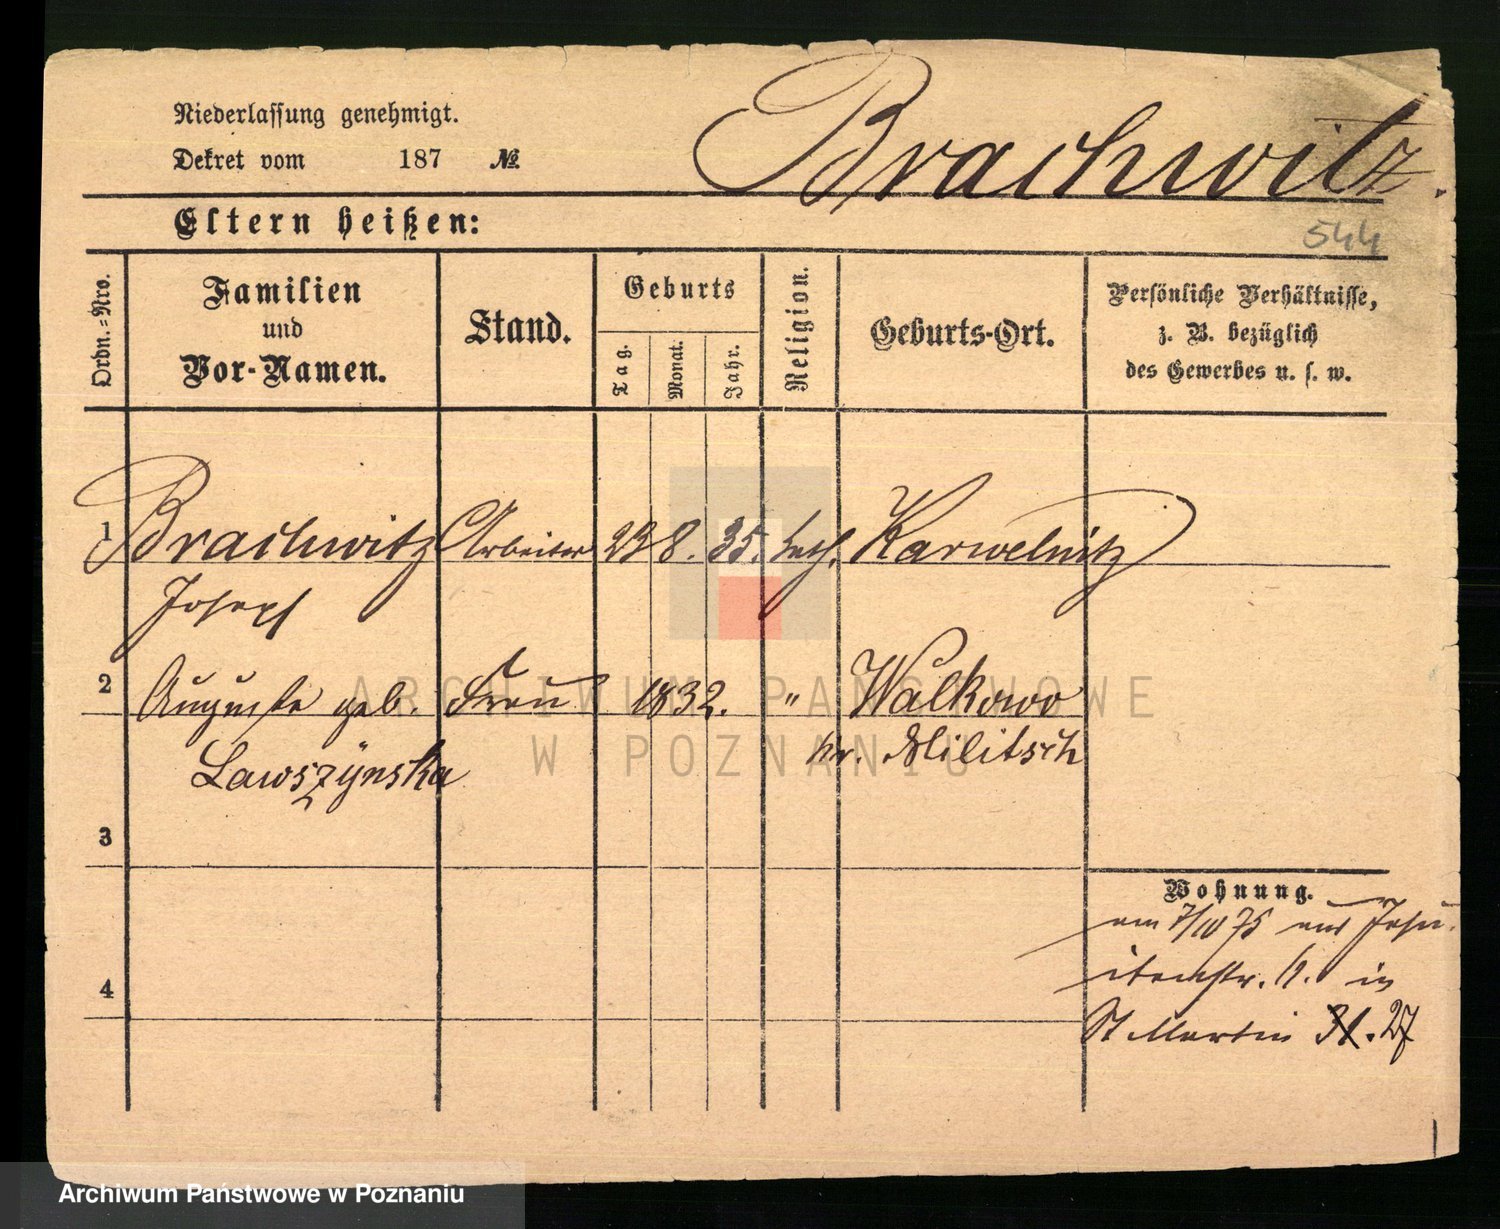 Niederlassung genehmigt.
Dekret vom 187 №
Brachwitz.
Eltern heißen:
544
Ordn.=Nro.
Familien
und
Vor-Namen.
Stand.
Geburts
Tag.
Monat.
Jahr.
Religion.
Geburts-Ort.
Persönliche Verhältnisse,
z. B. bezüglich
des Gewerbes u. s. w.
1 Brachwitz Arbeiter 23 8. 35. kath. Karwelnitz
Joseph
2 Auguste geb. Frau 1832. " Walkowo
Lawszÿnska Kr. Militsch
3
4
Wohnung.
am 7/IV 75 aus Jesu-
itenstr. in
St Martin 31. 27
ARCHIWUM PAŃSTWOWE
W POZNANIU
Archiwum Państwowe w Poznaniu